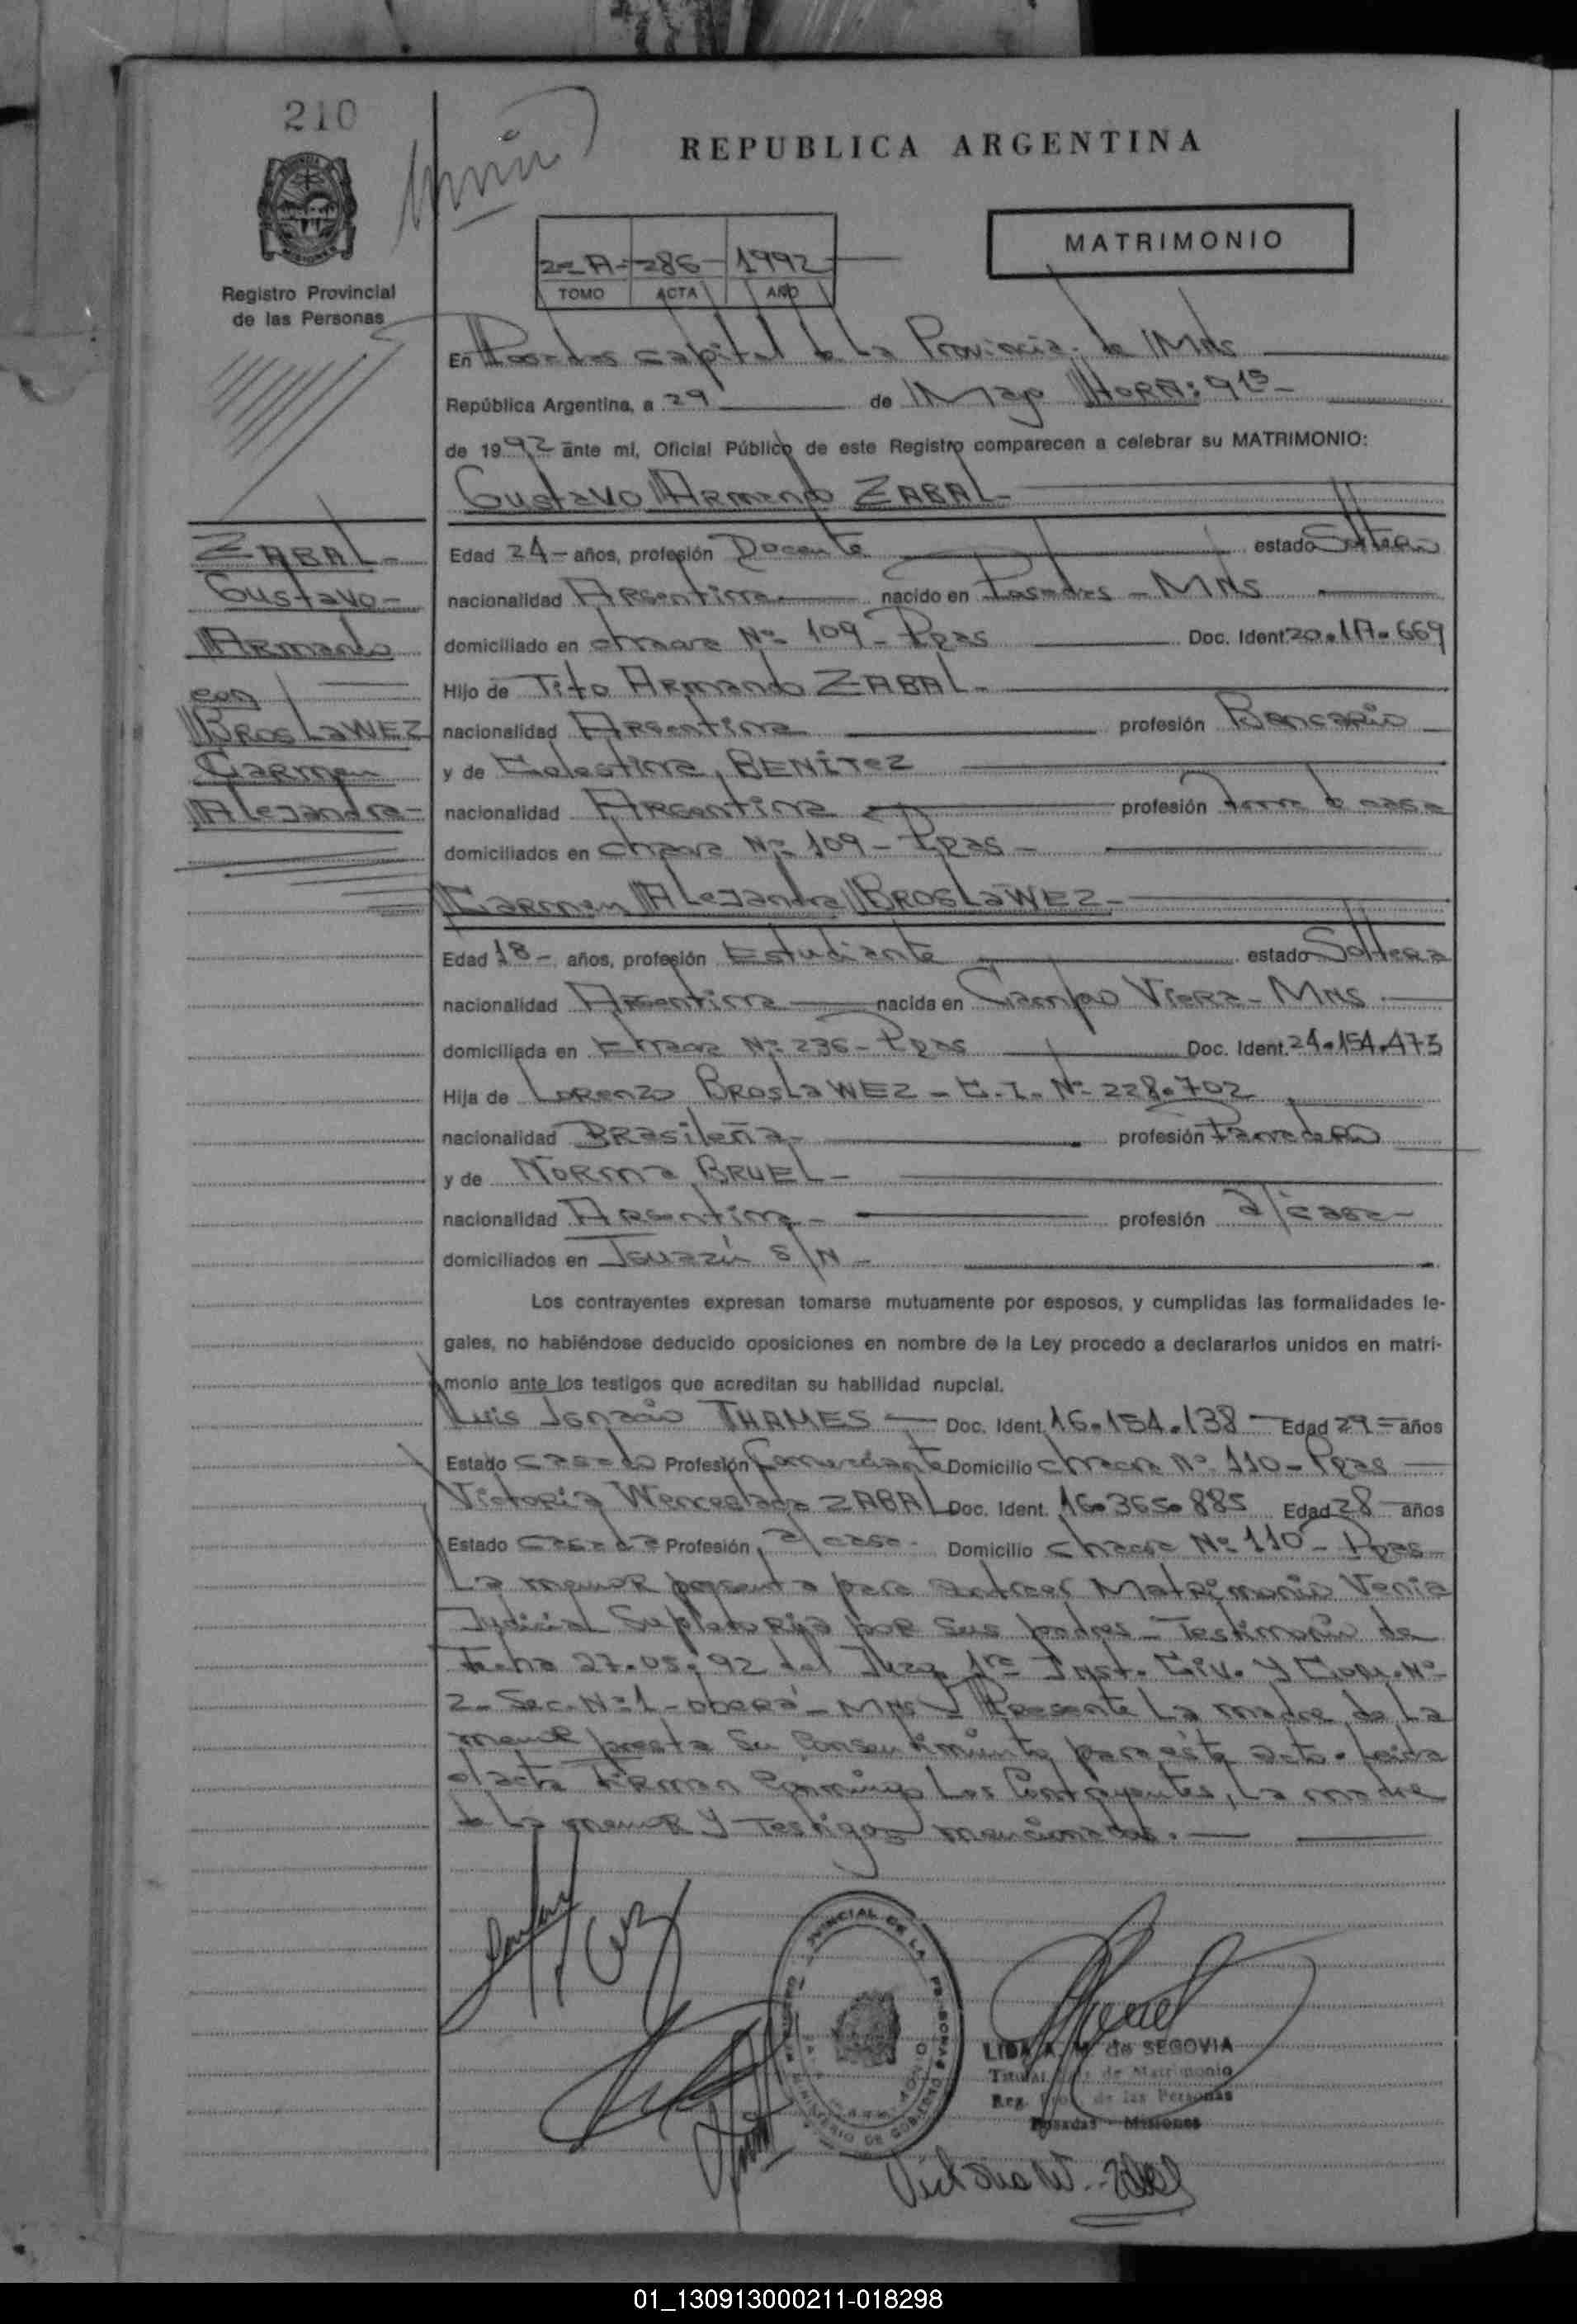 210
REPUBLICA ARGENTINA
MATRIMONIO
2-A- 286- 1992
TOMO ACTA AÑO
Registro Provincial
de las Personas
En Posadas capital de La Provincia de Mns
República Argentina, a 29 de Mayo HORA: 9
de 1992 ante mi, Oficial Público de este Registro comparecen a celebrar su MATRIMONIO:
Gustavo Armando ZABAL-
ZABAL-
Gustavo-
Armando
con
BROSLaWEZ
Carmen
Alejandra-
Edad 24- años, profesión Docente estado Soltero
nacionalidad Argentina nacido en Posadas - MNS
domiciliado en chacra Nº 109- Pdas Doc. Ident 20.
Hijo de Tito Armando ZABAL-
nacionalidad Argentina profesión Bancario
y de Celestina, BENITEZ
nacionalidad Argentina profesión ama de casa
domiciliados en chacra Nº 109- Pdas-
Carmen Alejandra BROSLaWEZ-
Edad 18- años, profesión Estudiante estado Soltera
nacionalidad Argentina nacida en Campo Viera- MNS
domiciliada en chacra Nº 236- Pdas Doc. Ident. 24.154.473
Hija de Lorenzo BROSLaWEZ - C.I. Nº 228.702
nacionalidad BRasileña- profesión Panadero
y de NORMA BRUEL-
nacionalidad Argentina- profesión a/casa-
domiciliados en Iguazú S/N-
Los contrayentes expresan tomarse mutuamente por esposos, y cumplidas las formalidades le-
gales, no habiéndose deducido oposiciones en nombre de la Ley procedo a declararlos unidos en matri-
monio ante los testigos que acreditan su habilidad nupcial.
Luis Ignacio THAMES - Doc. Ident. 16.154.138- Edad 29= años
Estado casado Profesión Comerciante Domicilio chacra Nº 110- Pdas
Victoria Wenceslada ZABAL Doc. Ident. 16.365.885 Edad 28 años
Estado casada Profesión a/casa- Domicilio chacra Nº 110- Pdas
La menor presenta para contraer Matrimonio Venia
Judicial Supletoria por sus padres- Testimonio de
Fecha 27.05.92 del Juzg. 1ra Inst. Civ. y Com. Nº
2- Sec. Nº 1- Oberá- MNS y Presente La madre de La
menor presta su Consentimiento para este acto. Leida
el acta Firman Conmigo Los Contrayentes, La madre
de La menor y Testigos mencionados.
LIDIA A. M. de SEGOVIA
Titular de Matrimonio
Reg. de las Personas
Posadas - Misiones
Victoria W. Zabal
01_130913000211-018298